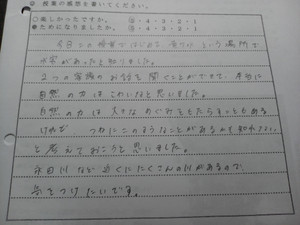 授業の感想を書いてください。
○楽しかったですか。 ⑤・4・3・2・1
●ためになりましたか。 ⑤・4・3・2・1
今日この授業ではじめて という場所で
水害があったと知りました。
2つの のお話を聞くことができて、本当に
自然の力はこわいなと思いました。
自然の力は大きなめぐみをもたらすこともある
けれど つねにこのようなことがあるかも知れない
と考えておこうと思いました。
川など近くにたくさんの川があるので
気をつけたいです。